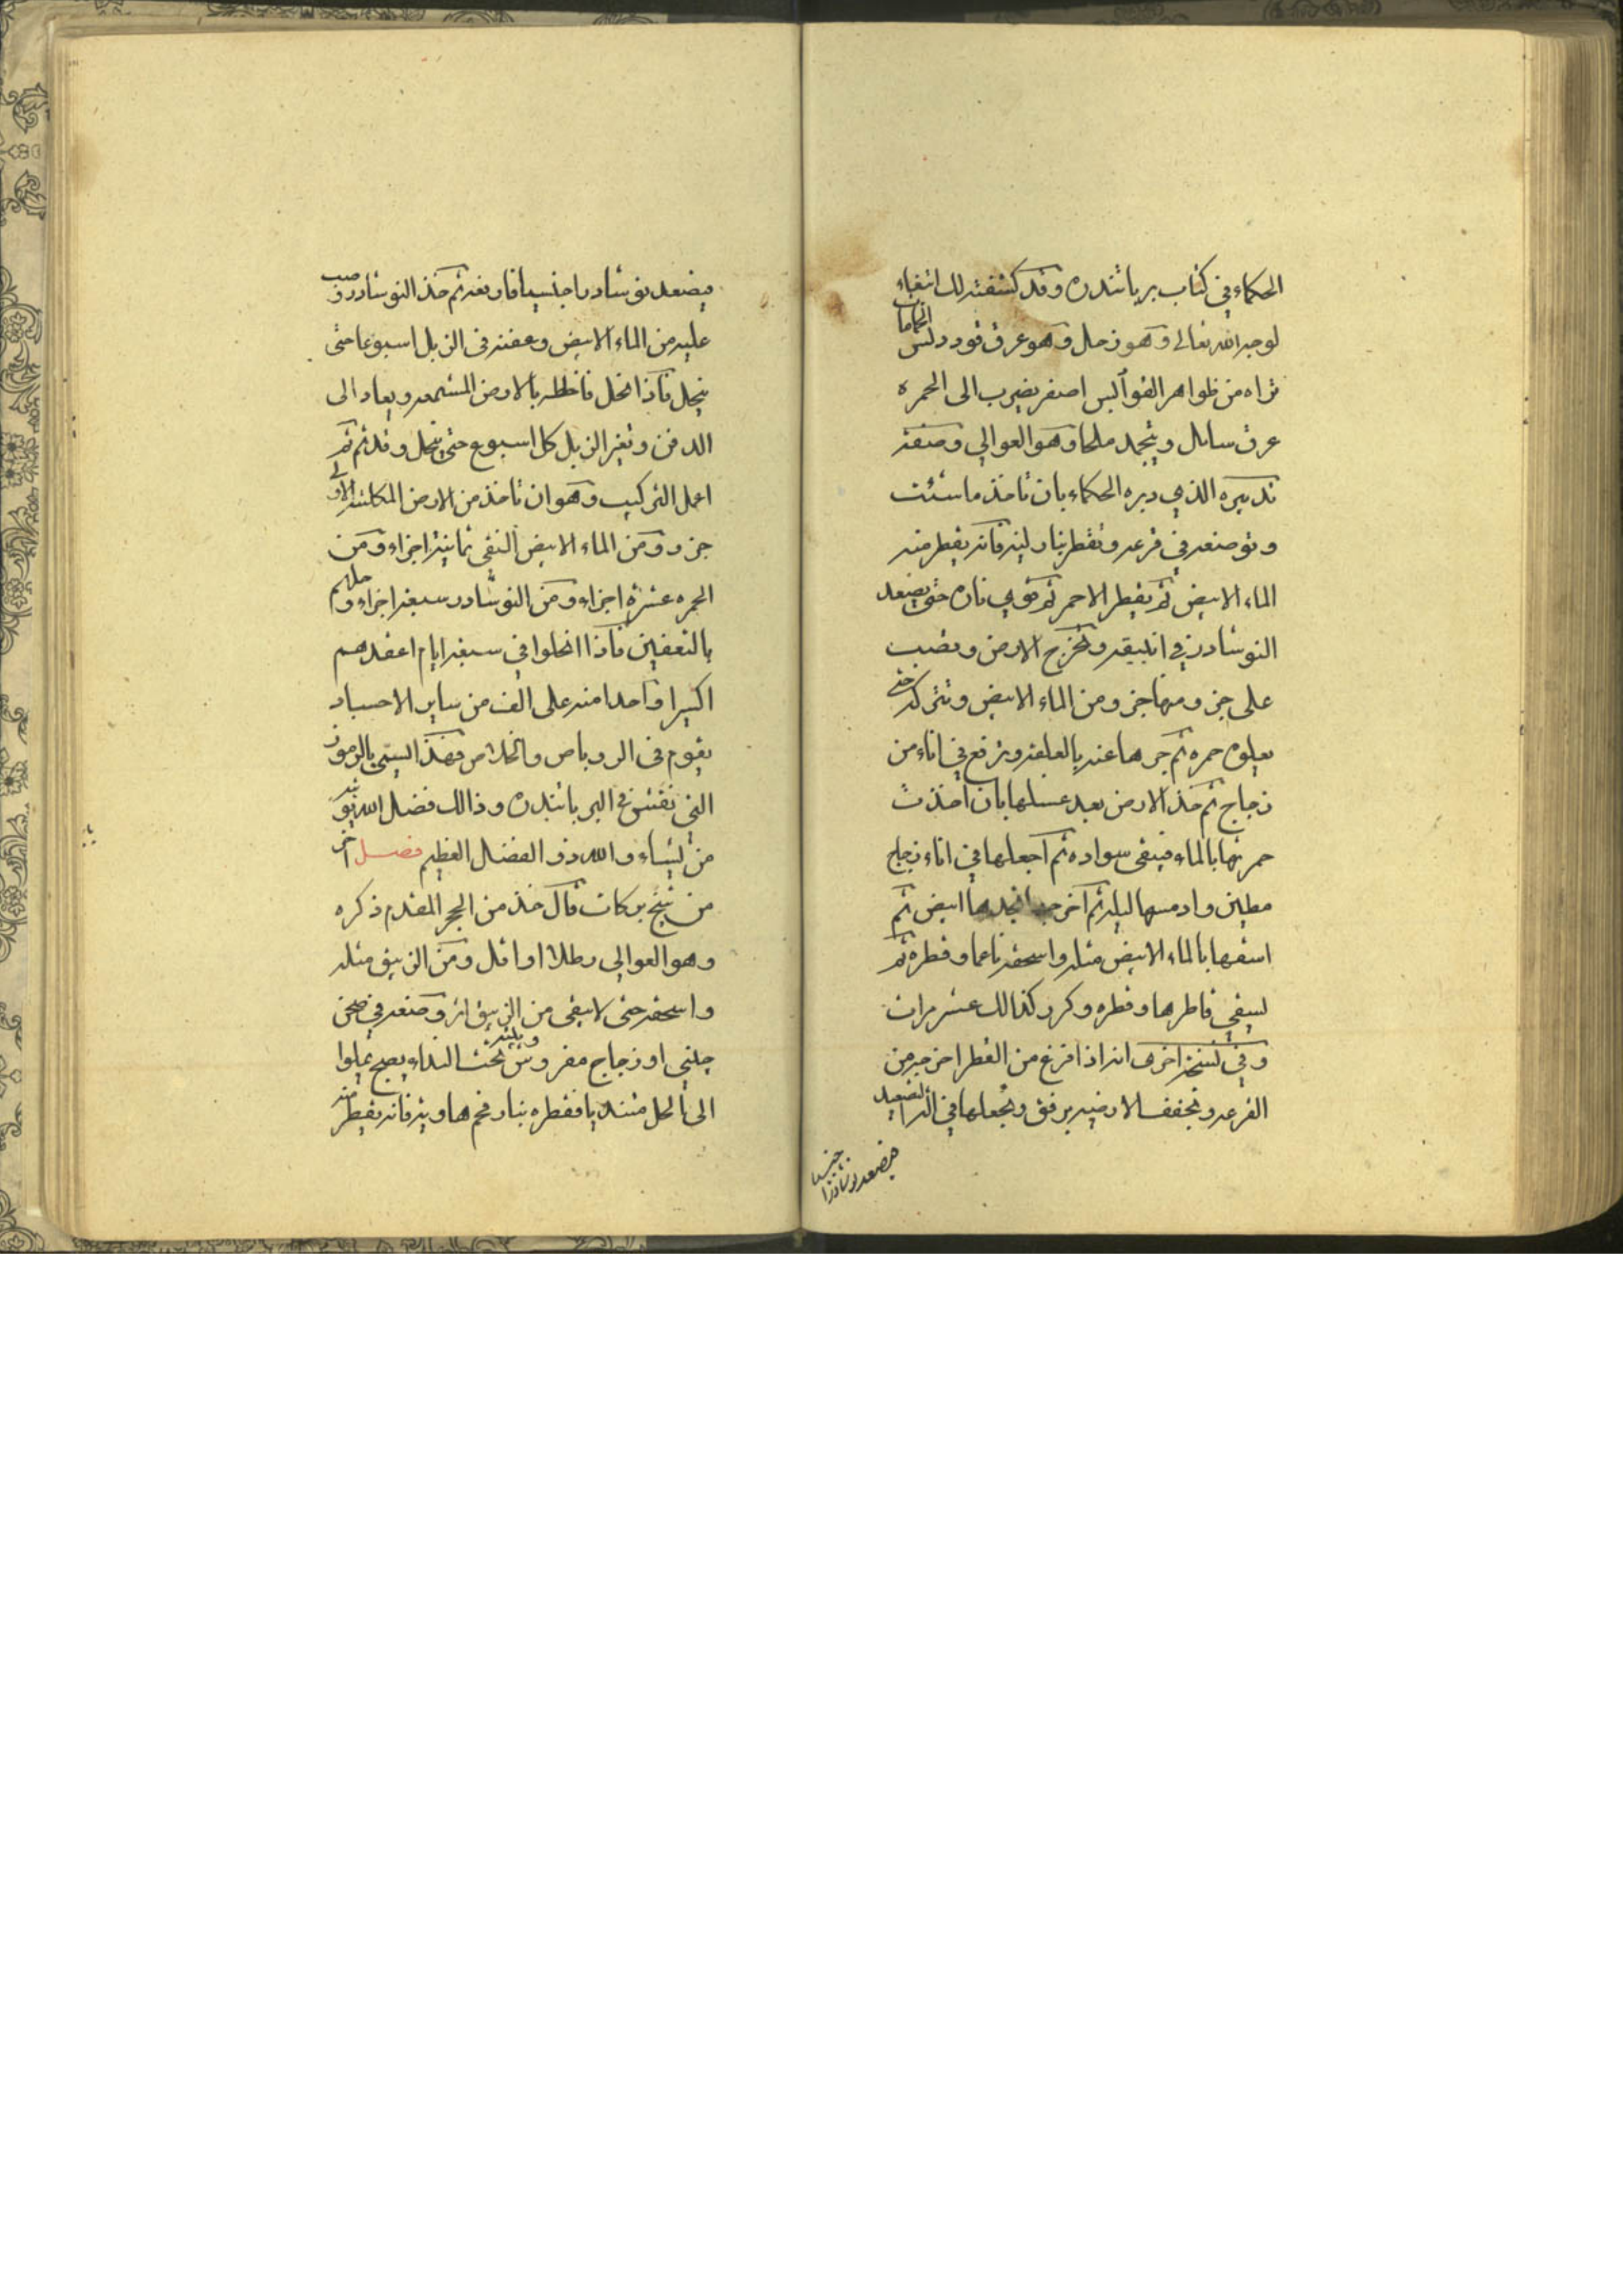 الحكماء في كتاب بر باشدره وقد كشفته لك ابتغاء
لوجه الله تعالى وهو زحل وهو عرق
تراه من ظواهر اصفر يضرب الى الحمره
عرق سايل وينجمد ملحا وهو العوالي وصنعة
تدبيره الذي دبره الحكماء بان تاخذ ما شئت
وتوضعه في قرعه وتقطر بنار لينه فانه يقطر منه
الماء الابيض ثم يقطر الاحمر ثم قوي ناره حتى يصعد
النوشادر في انبيقه وتخرج الارض وتصب
على جزء ومنها جزء ومن الماء الابيض وتتركه حتى
يعلوه حمره ثم جرها عنه بالعلقه وترفع في اناء من
زجاج ثم خذ الارض بعد غسلها بان اخذت
حمرتها بالماء فيبقى سواده ثم اجعلها في اناء زجاج
مطين وادمسها ليله ثم اخرجه ابيض ثم
اسقها بالماء الابيض مثله واسحقه ناعما وقطره ثم
اسقي قاطرها وقطره وكرر كذالك عشر مرات
وفي نسخة اخرى انه اذا فرغ من القطر اخرجه من
القرعه وتجفف الارضيه برفق وتجعلها في التصعيد
فيصعد نوشادرا جنسيا
فيصعد نوشادرا جنسيا فارفعه ثم خذ النوشادر وصب
عليه من الماء الابيض وعفنه في الزبل اسبوعا حتى
ينحل فاذا انحل فاخلطه بالارض المشمعه ويعاد الى
الدفن وتغير الزبل كل اسبوع حتى ينحل وقد تم ثم
اعمل التركيب وهو ان تاخذ من الارض المكلسه الاولى
جزء ومن الماء الابيض النقي ثمانية اجزاء ومن
الحمره عشرة اجزاء ومن النوشادر سبعة اجزاء وحلهم
بالتعفين فاذا انحلوا في سبعة ايام اعقدهم
اكسيرا واحدا منه على الف من ساير الاجساد
يقوم في الروباص والخلاص فهذا السمي بالرموز
التي نقش في البر باشدره وذالك فضل الله يؤتيه
من يشاء والله ذو الفضل العظيم فصل اخر
من شيخ بركات قال خذ من الحجر المقدم ذكره
وهو العوالي رطلا او اقل ومن الزيبق مثله
واسحقه حتى لا يبقى من الزيبق اثر وضعه في صحن
صيني او زجاج مفروش تحت النداء ويلينه يصح
الى الحل فقطره بنار فحم هاويه فانه يقطر منه